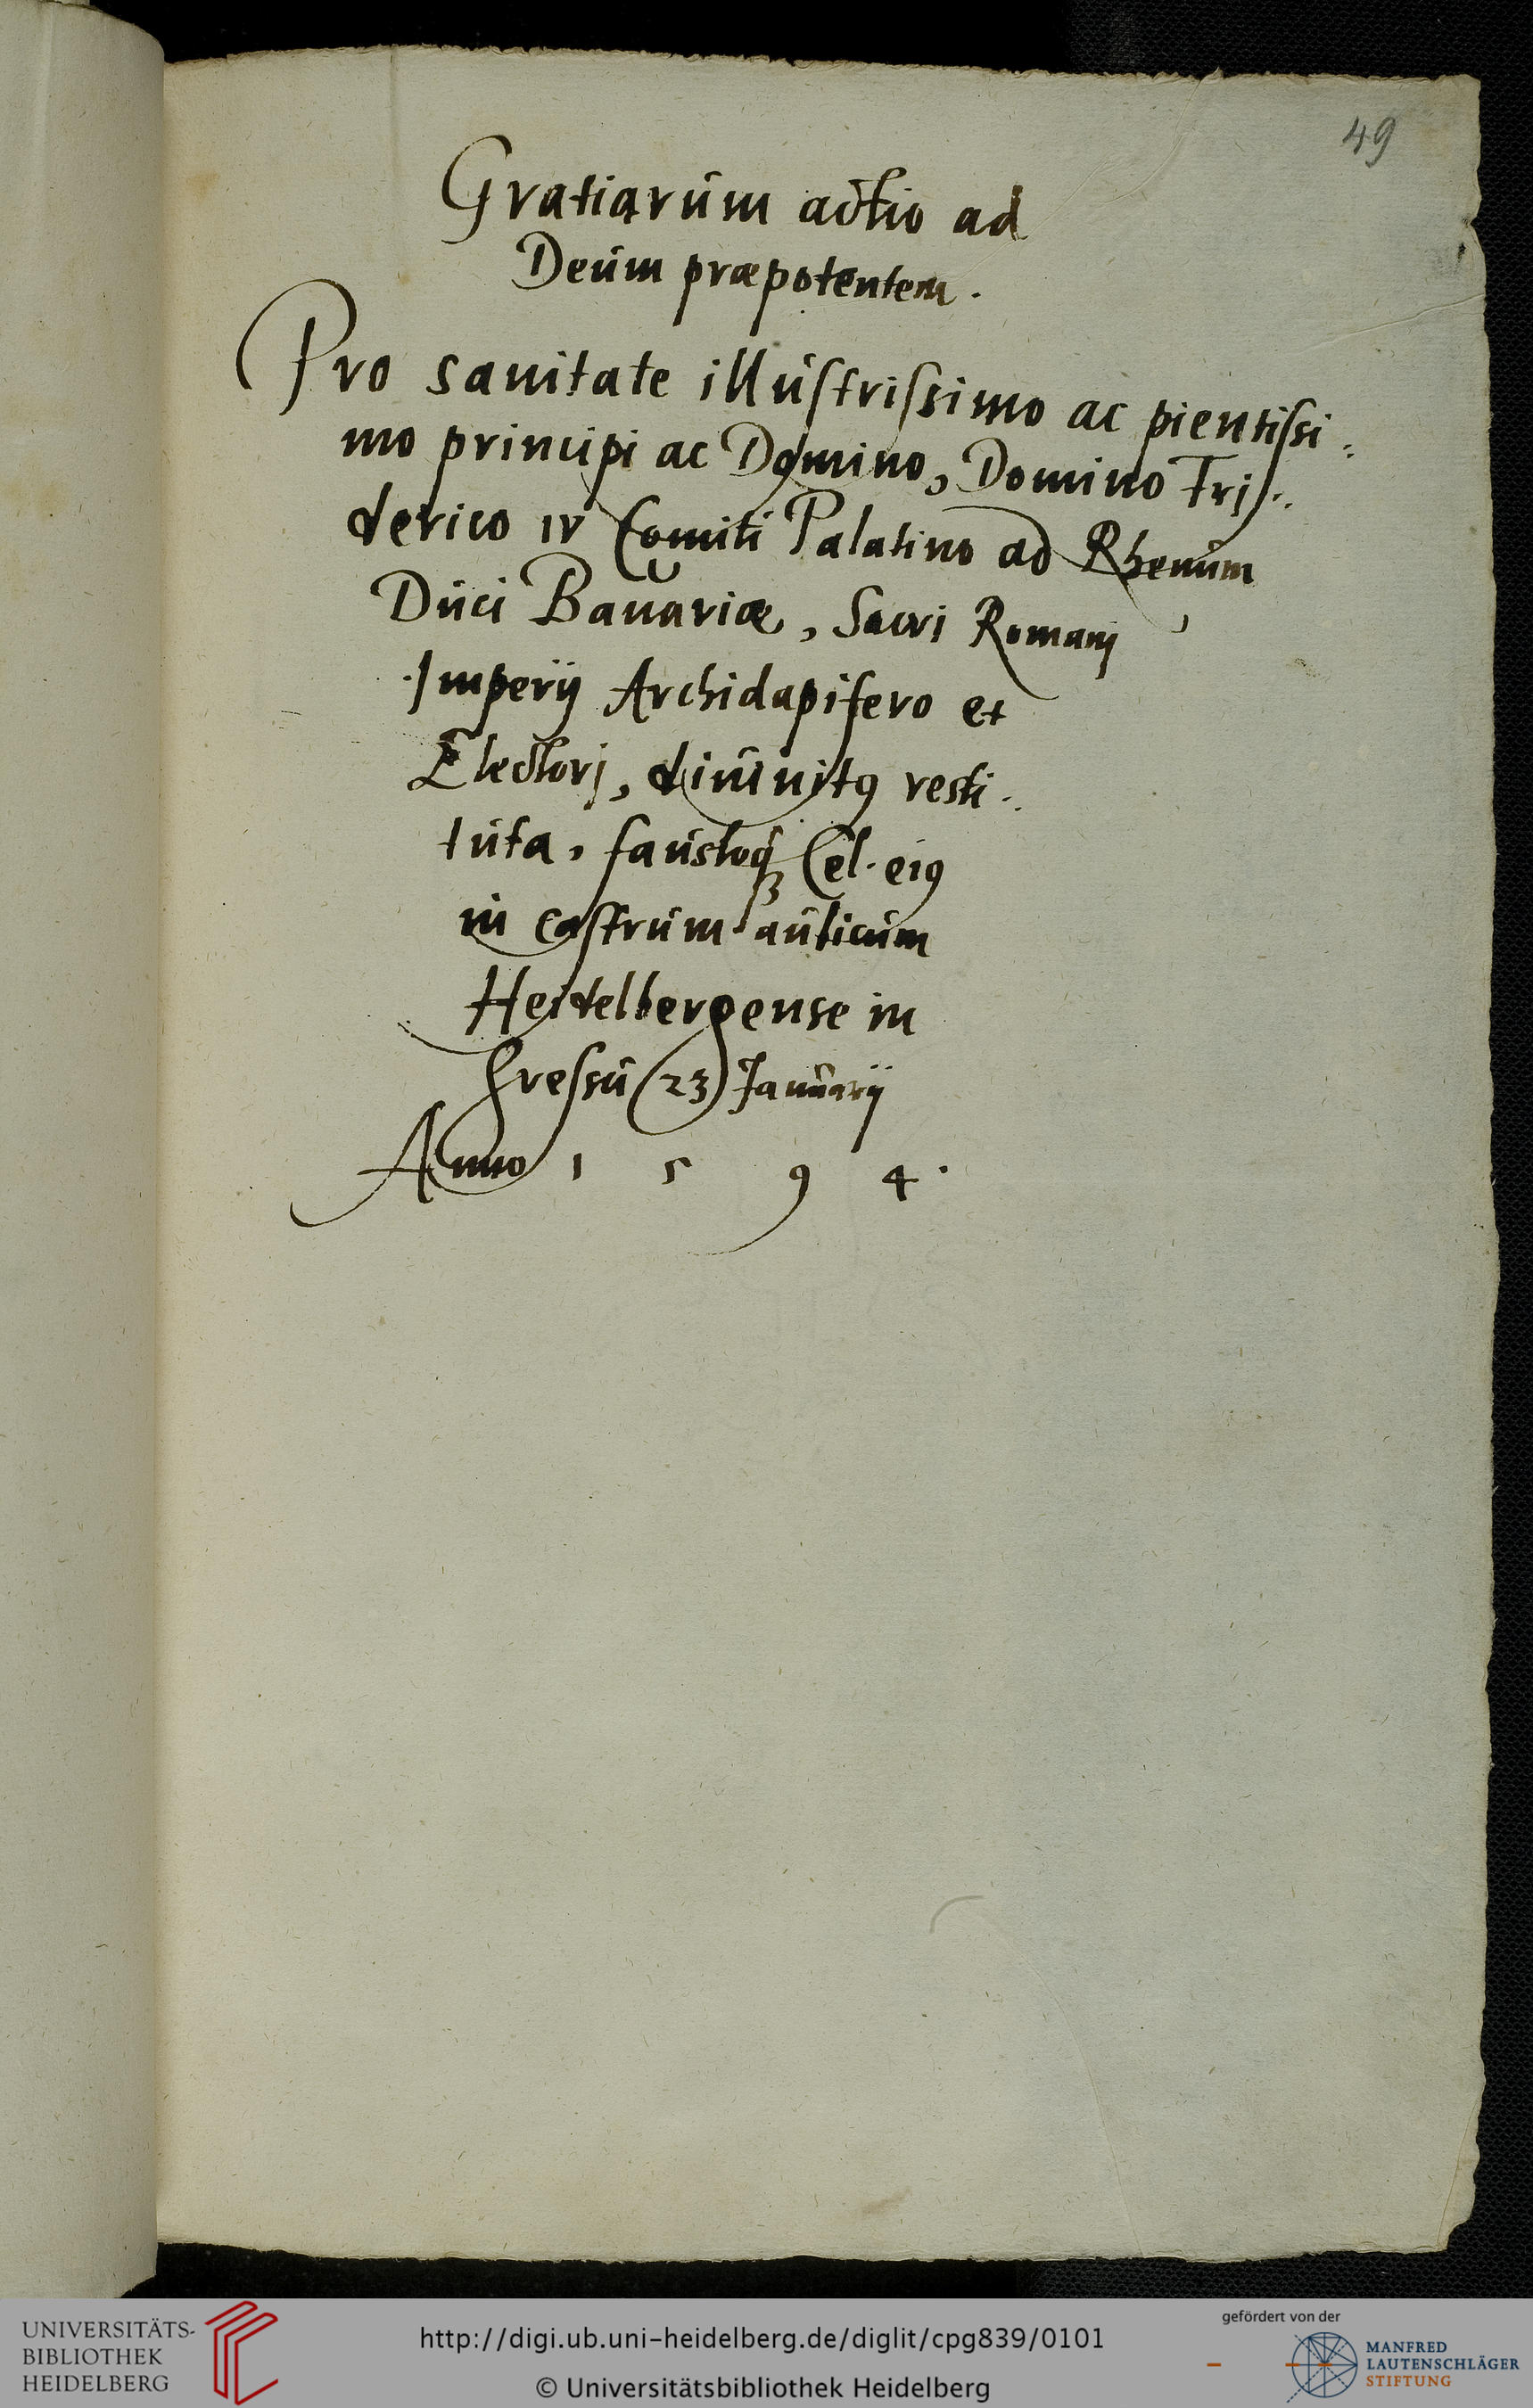 49
Gratiarum actio ad
Deum præpotentem.
Pro sanitate illustrissimo ac pientissi-
mo principi ac Domino, Domino Fri-
derico IV Comiti Palatino ad Rhenum,
Duci Bavariæ, Sacri Romanj
Imperij Archidapifero et
Electorj, divinitꝰ resti-
tuta, faustoqꝫ Cel. eiꝰ
in castrum aulicum
Heidelbergense in
Gressu (23) Januarij
Anno 1 5 9 4.
UNIVERSITÄTS-
BIBLIOTHEK
HEIDELBERG
http://digi.ub.uni-heidelberg.de/diglit/cpg839/0101
© Universitätsbibliothek Heidelberg
gefördert von der
MANFRED
LAUTENSCHLÄGER
STIFTUNG